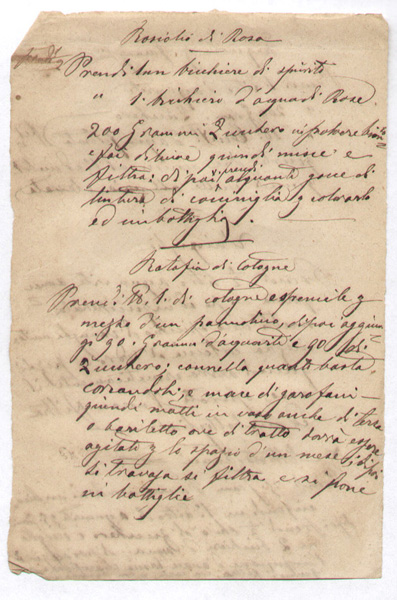 Rosiolio di Rosa
Prendi 1 un bicchiere di spirito
" 1. bichiero d'aqua di Rose.
200 Grammi Zucchero in polvere
e poi di bene quindi mesce e
filtra: di poi prendi alquante goce di
tintura di cociniglia p colorarlo
ed imbottiglia.
Ratafia di Cotogne
Prendi lb. 1. di cotogne espremile p
mezzo d'un pannolino, di poi aggiun
gi 90. Grammi d'aquavite e 90 di
Zucchero; cannella quanto basta
coriandoli, e mace di garofani
quindi metti in vaso anche di terra
o bariletto ove di tratto dovrà essere
agitato p lo spazio d'un mese, di poi
si travasa si filtra e si pone
in bottiglie